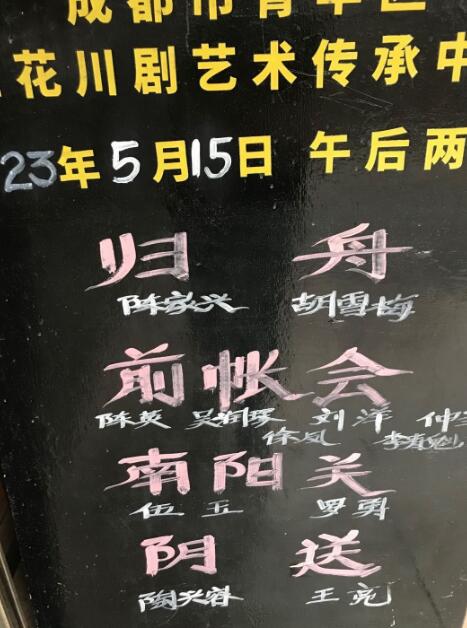 成都市青羊区
花川剧艺术传承中
23年5月15日 午后两
归舟
陈家兴 胡雪梅
前帐会
陈英 吴 刘洋 仲
徐凤 李
南阳关
伍五 罗勇
阴送
陶兴蓉 王亮